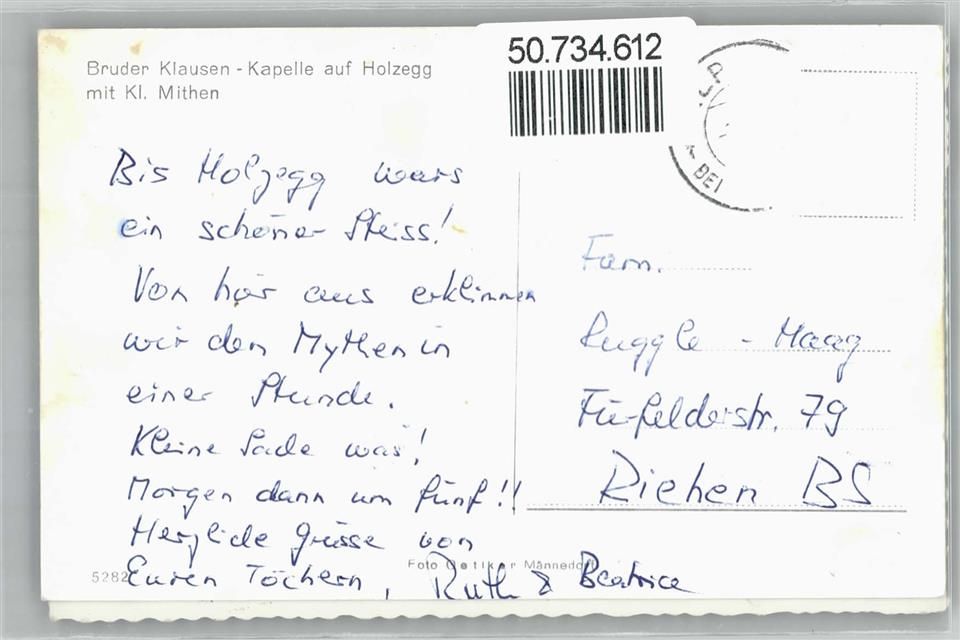 Bruder Klausen - Kapelle auf Holzegg
mit Kl. Mithen
50.734.612
BEI
Bis Holzegg wars
ein schöner Steiss!
Von hier aus erklimmen
wir den Mythen in
einer Stunde.
Kleine Sache was!
Morgen dann um fünf!!
Herzliche Grüsse von
Euren Töchern, Ruth & Beatrice
Fam.
Ruggle - Maag
Fürfelderstr. 79
Riehen BS
Foto Oetiker Männedorf
5282